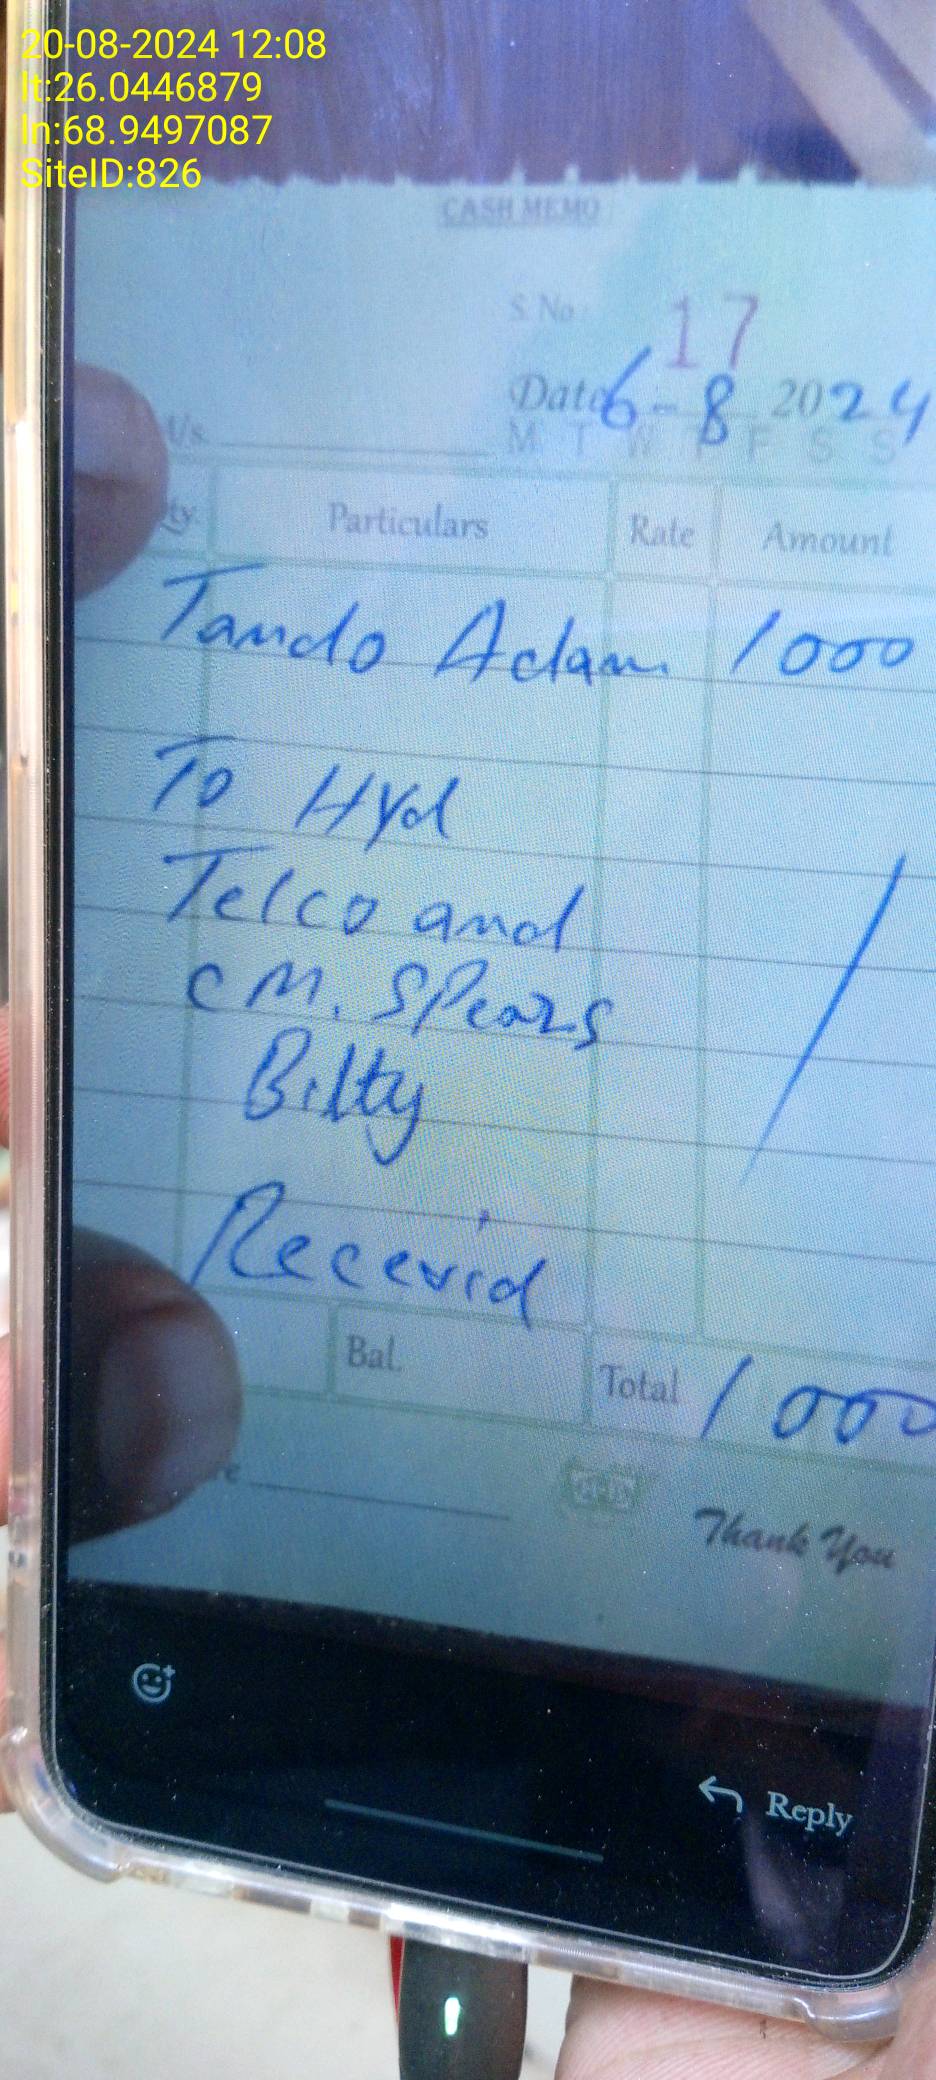 20-08-2024 12:08
lt:26.0446879
ln:68.9497087
SiteID:826
CASH MEMO
S. No 17
Date 6-8 2024
M T W T F S S
Particulars Rate Amount
Tando Adam 1000
To Hyd
Telco and
CM. SPears
Bilty
Recevid
Bal. Total 1000
Thank You
Reply